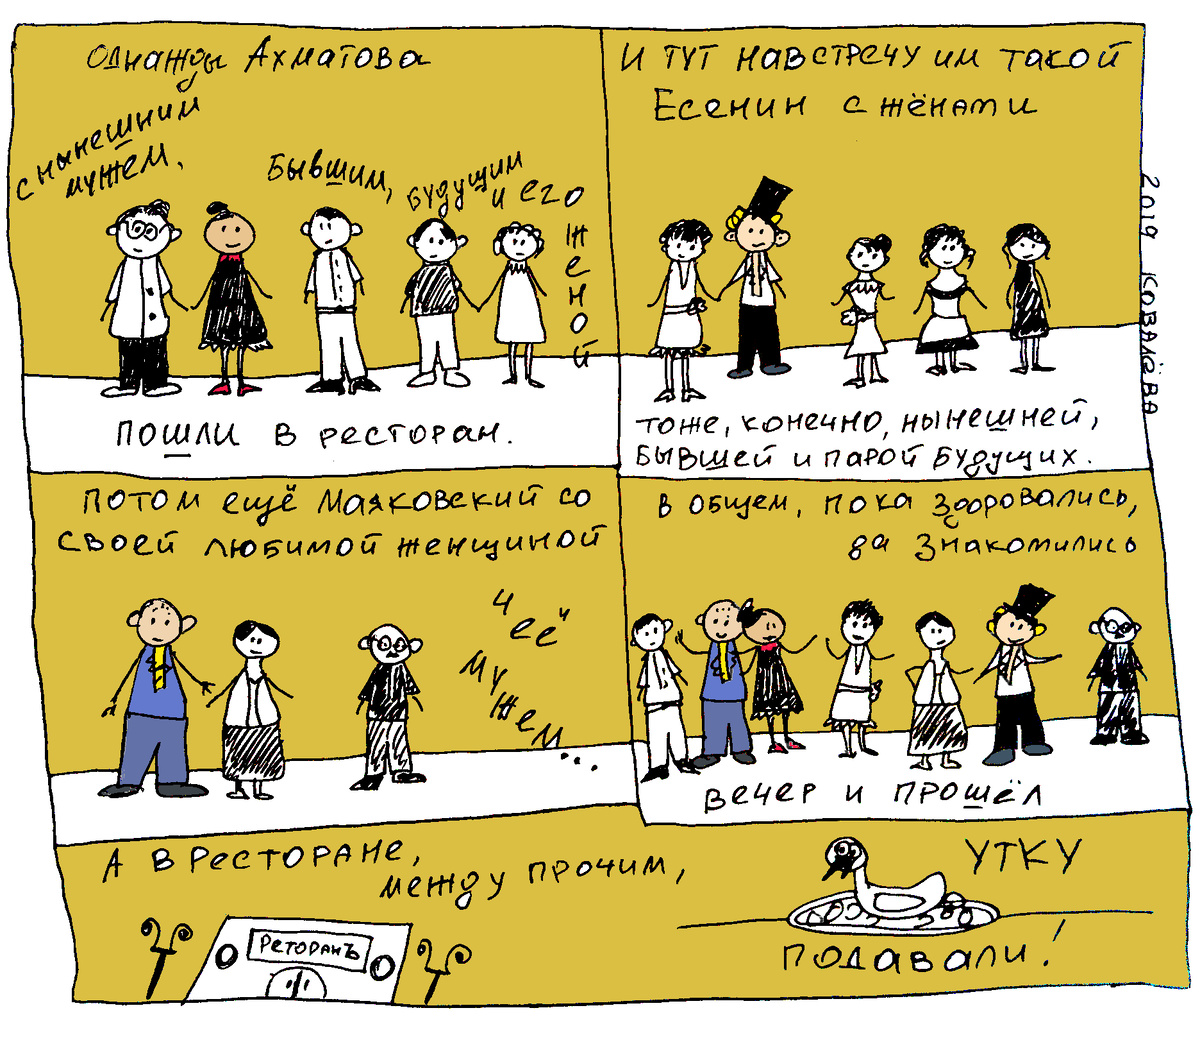 Однажды Ахматова
с нынешним
мужем,
бывшим,
будущим
и его
женой
пошли в ресторан.
И тут навстречу им такой
Есенин с жёнами
тоже, конечно, нынешней,
бывшей и парой будущих.
2019 КОВАЛЁВА
потом ещё Маяковский со
своей любимой женщиной
и её
мужем...
в общем, пока здоровались,
да знакомились
вечер и прошёл
А в ресторане,
между прочим,
РесТоранЪ
утку
подавали!